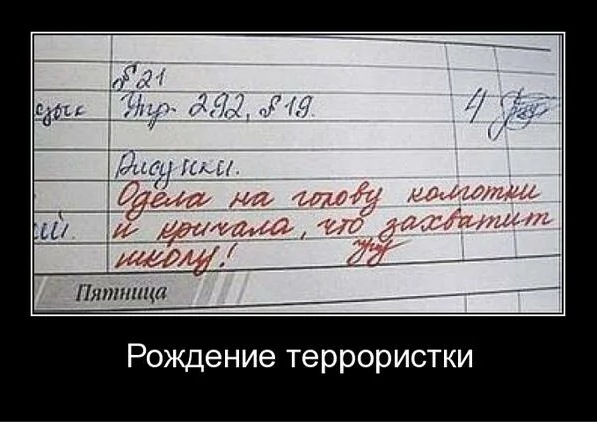 §21
язык Упр. 292, §19. 4
Рисунки.
Одела на голову колготки
ий. и кричала, что захватит
школу!
Пятница
Рождение террористки